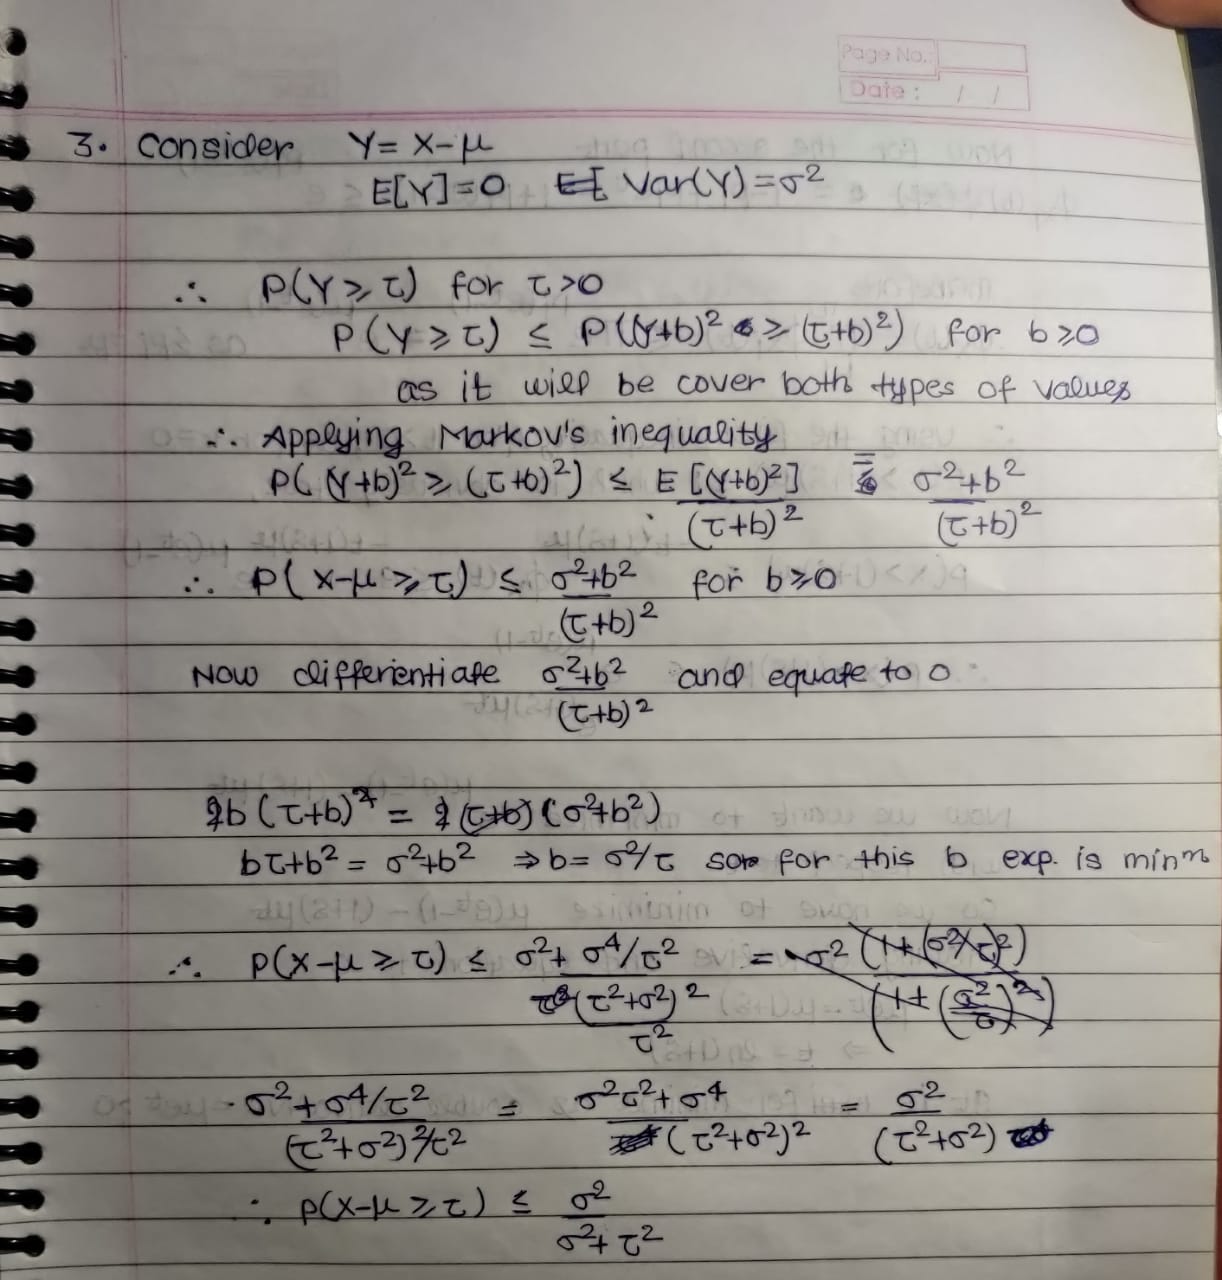 Page No.:
Date : / /
3. Consider Y = X-μ
E[Y]=0 Var(Y)=σ²
∴ P(Y ≥ τ) for τ>0
P(Y ≥ τ) ≤ P((Y+b)² ≥ (τ+b)²) for b≥0
as it will be cover both types of values
∴ Applying Markov's inequality
P((Y+b)² ≥ (τ+b)²) ≤ E[(Y+b)²]/(τ+b)² = σ²+b²/(τ+b)²
∴ P(X-μ ≥ τ) ≤ σ²+b²/(τ+b)² for b≥0
Now differentiate σ²+b²/(τ+b)² and equate to 0
2b(τ+b)² = 2(τ+b)(σ²+b²)
bτ+b² = σ²+b² ⇒ b = σ²/τ so for this b exp. is minm
∴ P(X-μ ≥ τ) ≤ σ²+σ⁴/τ²/(τ²+σ²)²/τ² =
σ²+σ⁴/τ²/(τ²+σ²)²/τ² = σ²τ²+σ⁴/(τ²+σ²)² = σ²/(τ²+σ²)
∴ P(X-μ ≥ τ) ≤ σ²/σ²+τ²